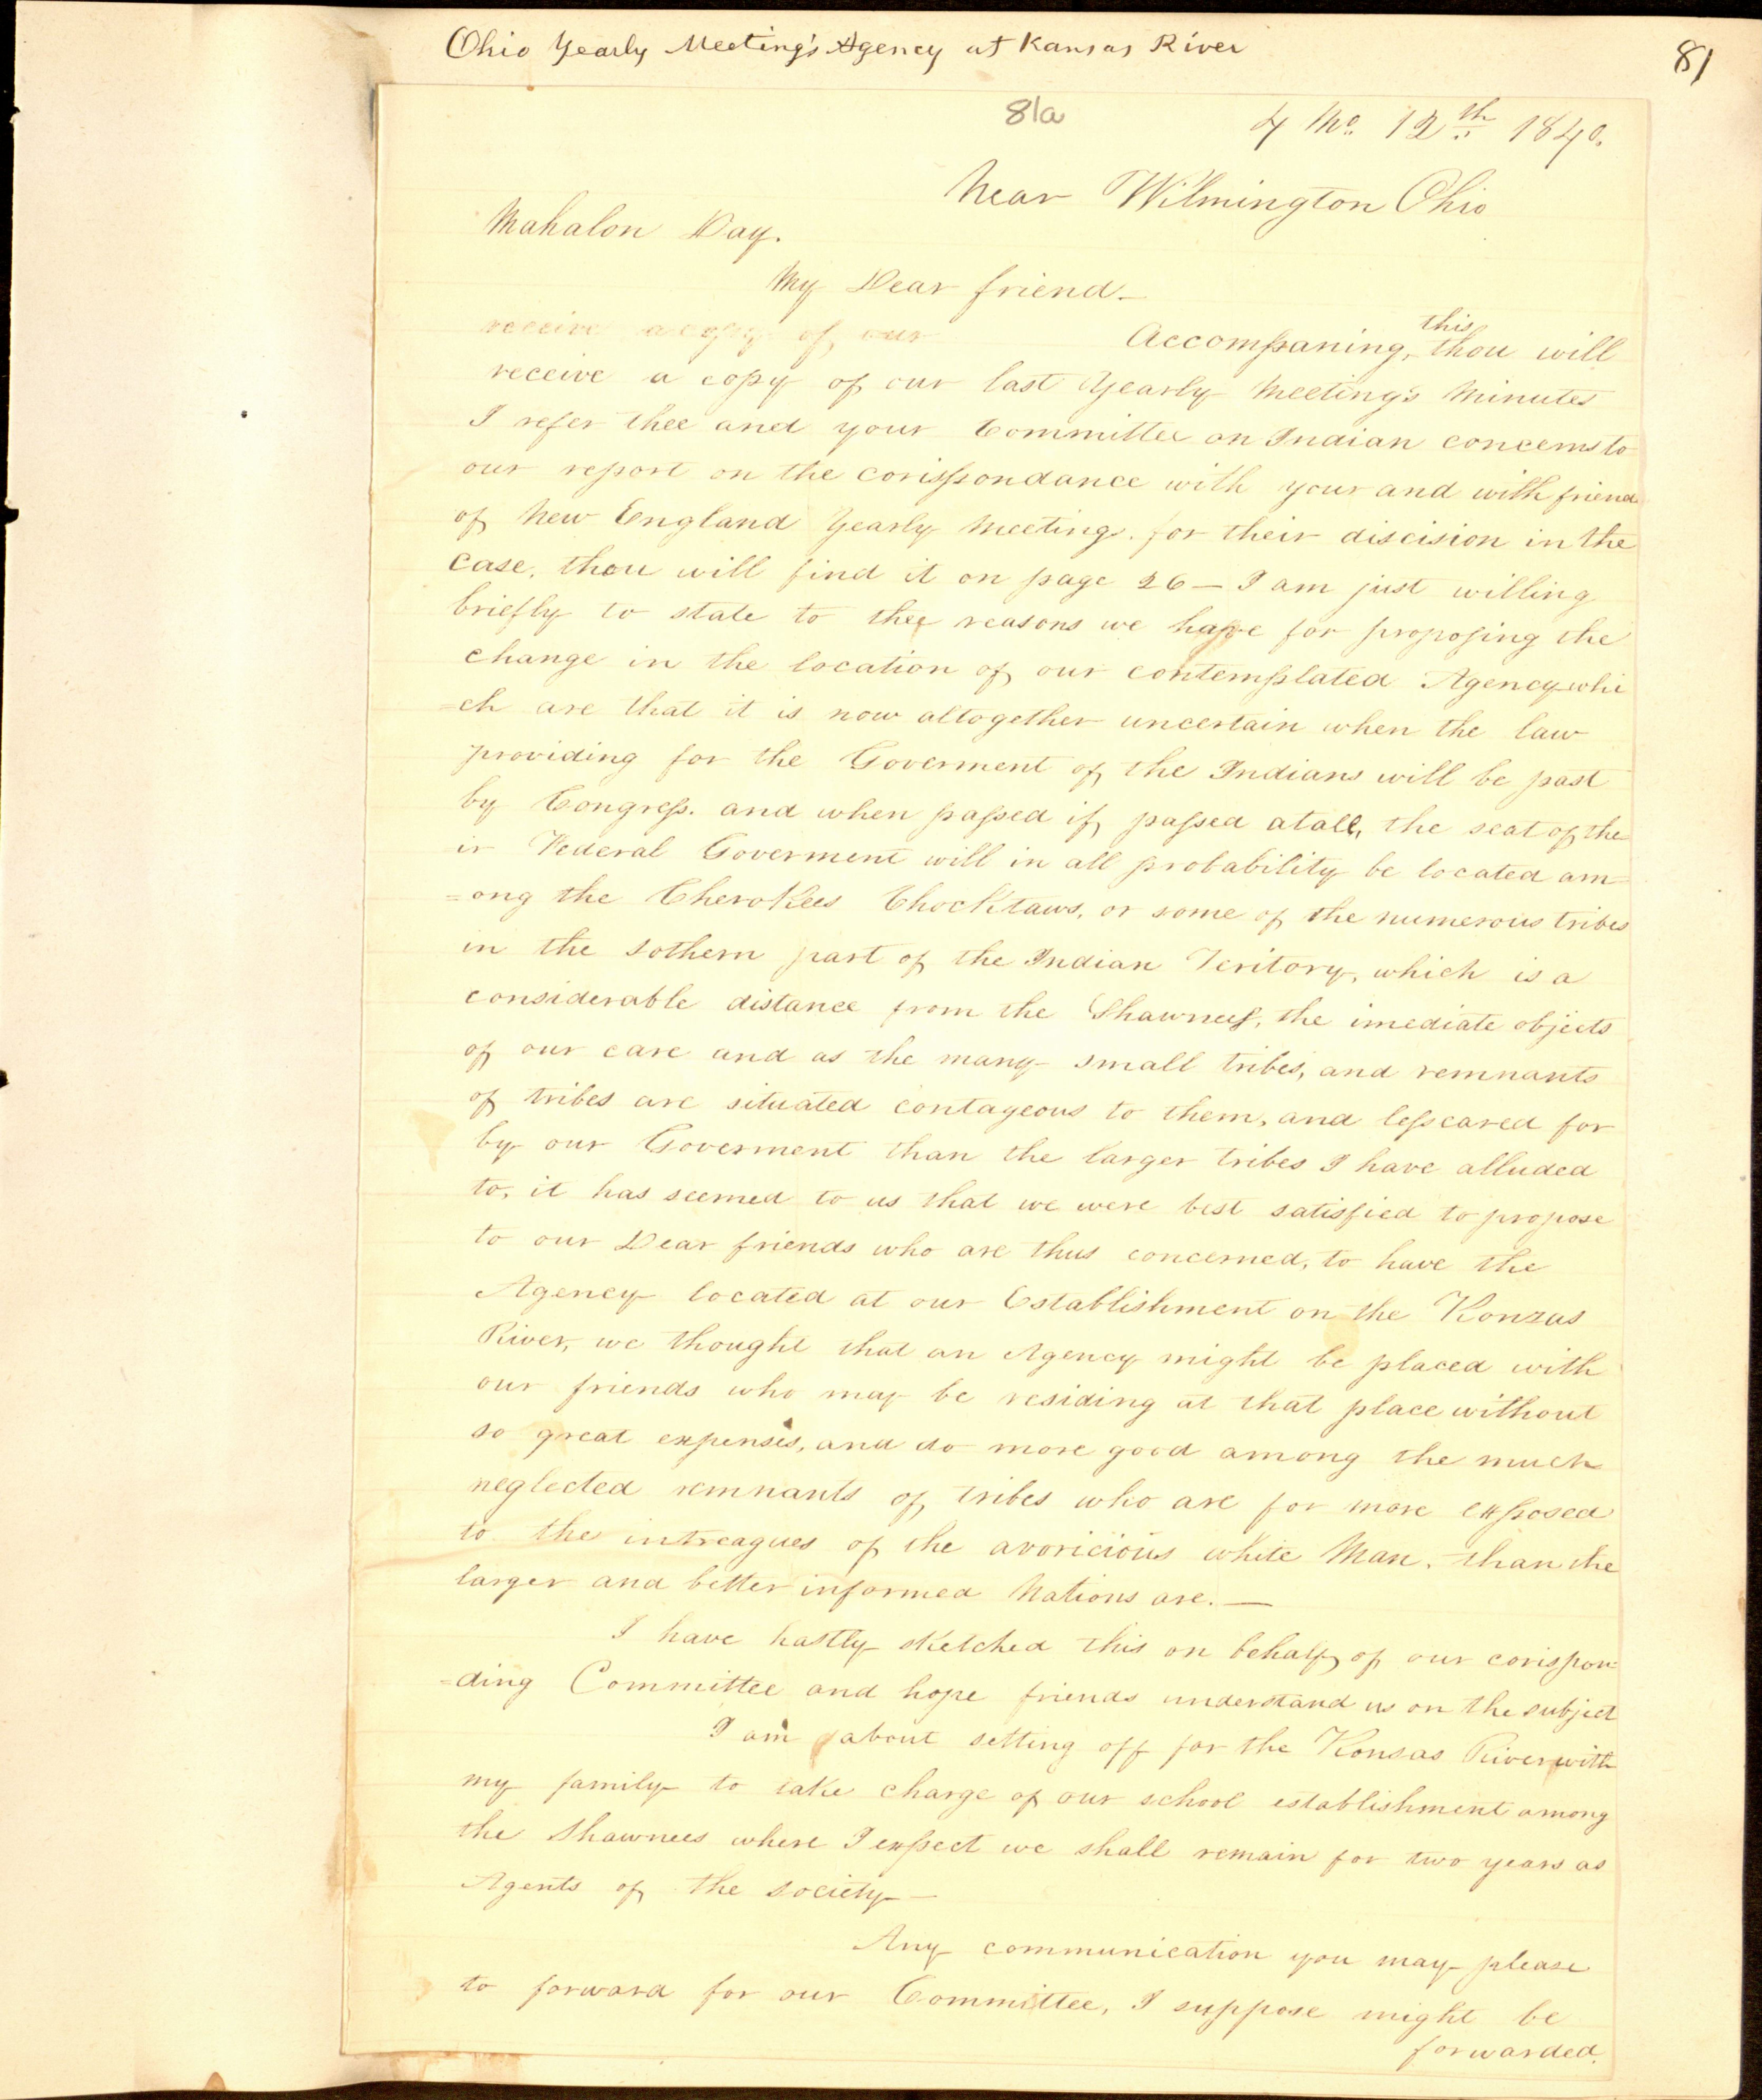 Ohio Yearly Meeting's Agency at Kansas River
81
81a
4 Mo. 12th 1840.
Near Wilmington Ohio
Mahalon Day.
My Dear friend.—
receive a copy of our
Accompaning, this thou will
receive a copy of our last Yearly Meeting's Minutes
I refer thee and your Committee on Indian concerns to
our report on the corispondance with your and with friends
of New England Yearly Meeting. for their discision in the
case. thou will find it on page 26— I am just willing
briefly to state to thee reasons we have for proposing the
change in the location of our contemplated Agency whi
=ch are that it is now altogether uncertain when the law
providing for the Goverment of the Indians will be past
by Congress. and when passed if passed atall, the seat of the
ir Federal Goverment will in all probability be located am=
=ong the Cherokees Chocktaws, or some of the numerous tribes
in the sothern part of the Indian Teritory, which is a
considerable distance from the Shawnees, the imediate objects
of our care and as the many small tribes, and remnants
of tribes are situated contageous to them, and less cared for
by our Goverment than the larger tribes I have alluded
to, it has seemed to us that we were best satisfied to propose
to our Dear friends who are thus concerned, to have the
Agency located at our Establishment on the Konzas
River, we thought that an Agency might be placed with
our friends who may be residing at that place without
so great expenses, and do more good among the much
neglected remnants of tribes who are for more exposed
to the intreagues of the avoricious white Man. than the
larger and better informed Nations are.—
I have hastly sketched this on behalf of our corispon=
=ding Committee and hope friends understand us on the subject
I am about setting off for the Konsas River with
my family to take charge of our school establishment among
the Shawnees where I expect we shall remain for two years as
Agents of the society—
Any communication you may please
to forward for our Committee, I suppose might be
forwarded.